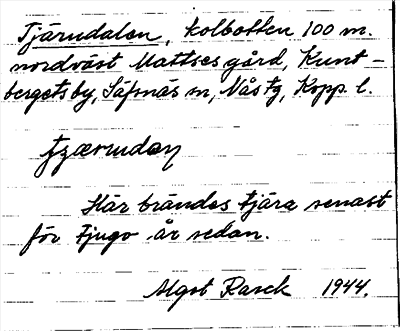 Tjärudalen, kolbotten 100 m.
nordväst Mattses gård, Kunt-
bergets by, Säfsnäs sn, Nås tg, Kopp. l.
Här brändes tjära senast
för tjugo år sedan.
Algot Rasck 1944.